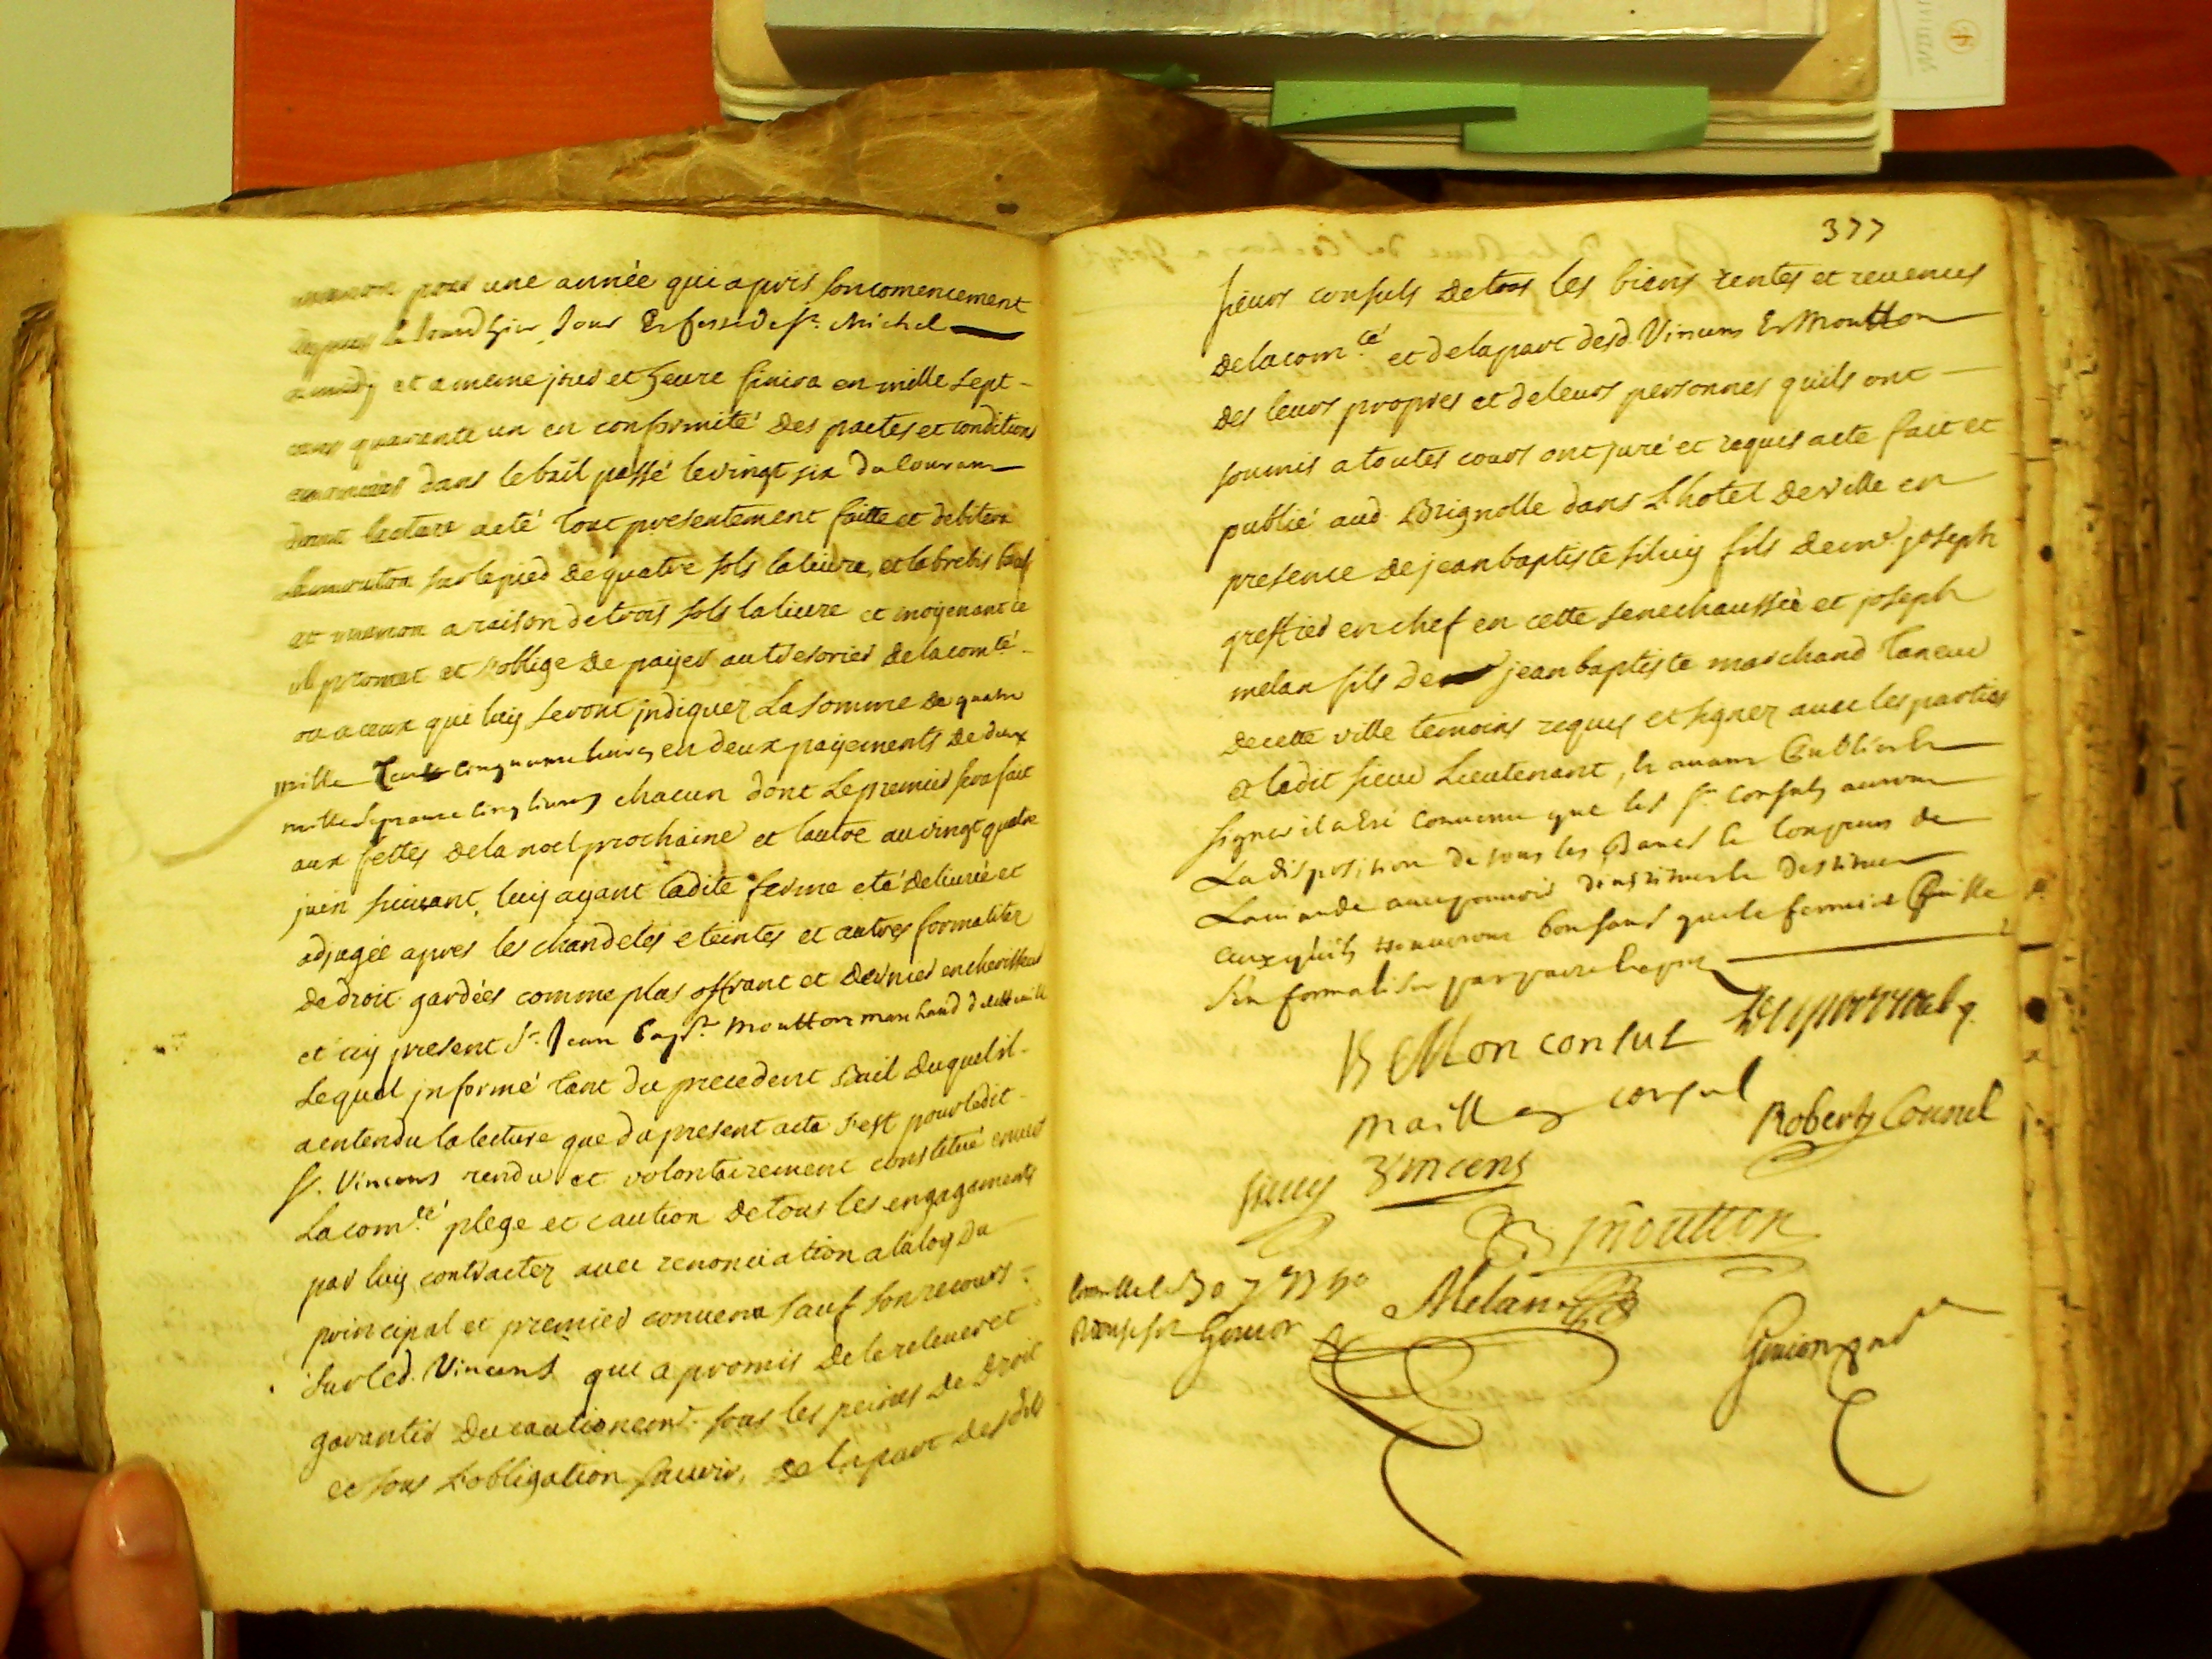 pour une année qui a pris son comencement
jour et feste de st. Michel
a midy et a meme jour et heure finira en mille sept
cens quarante un en conformité des pactes et conditions
dans le bail passé le vingt six du courant
dont lecture a eté tout presentement faitte et debitera
le mouton sur le pied de quatre sols la livre, et la brebis
et menon a raison de trois sols la livre et moyenant ce
il promet et s'oblige de payer au tresorier de la comté
ou a ceux qui luy seront jndiquez la somme de quatre
mille cent cinquante livres en deux payements de deux
mille septante cinq livres chacun dont le premier sera fait
aux fettes de la noel prochaine et lautre au vingt quatre
juin suivant, luy ayant ladite ferme eté delivrée et
adjugée apres les chandeles eteintes et autres formalitez
de droit gardées comme plus offrant et dernier encherisseur
et icy present Sr. Jean Bapte. Moutton marchand de cette ville
Lequel jnformé tant du precedent Bail duquel il
a entendu la lecture que du present acte s'est pour ledit
Sr. Vincens rendu et volontairement constitué envers
La comté plege et caution de tous les engagements
par luy contractez avec renonciation a la loy du
principal et premier convenu sauf son recours
sur led. Vincens qui a promis de le relever et
garantir du cautionemt. sous les peines de droit
et sous l'obligation scavoir, de la part desdits
377
sieurs consuls de tous les biens rentes et revenus
de la comté et de la part desd. Vincens et Moutton
des leurs propres et de leurs personnes quils ont
soumis a toutes cours ont juré et requis acte fait et
publié aud. Brignolle dans L'hotel de ville en
presence de jean baptiste Silvy fils de me joseph
greffier en chef en cette senechaussée et joseph
melan fils de jean baptiste marchand taneur
de cette ville temoins requis et signez avec les parties
et ledit sieur Lieutenant, et avant publier et
signer il a eté convenu que les srs. consuls auront
La disposition de tous les Bancs de
La viande avec pouvoir dinstituer et destituer
ceux quils trouveront bon sans que le fermier puisse
s'en formaliser par pacte expres
B Mon consul
maille consul
Robert Consul
Silvy
Vincens
B moutton
Melan
Controllé le 30 7bre 1740